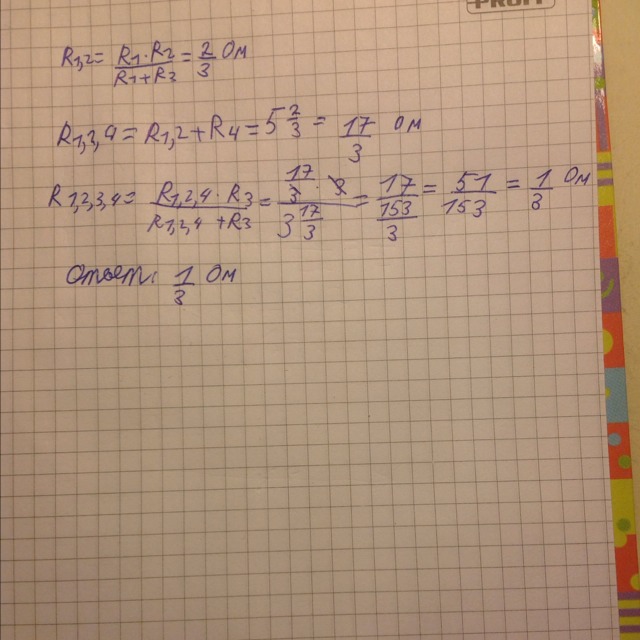 PROFF
R1,2= R1·R2/R1+R3 = 2/3 Ом
R1,3,4 = R1,2 + R4 = 5 2/3 = 17/3 Ом
R1,2,3,4= R1,2,4 · R3/R1,2,4 + R3 = 17/3 · 3/3 17/3 = 17/153/3 = 51/153 = 1/3 Ом
Ответ: 1/3 Ом